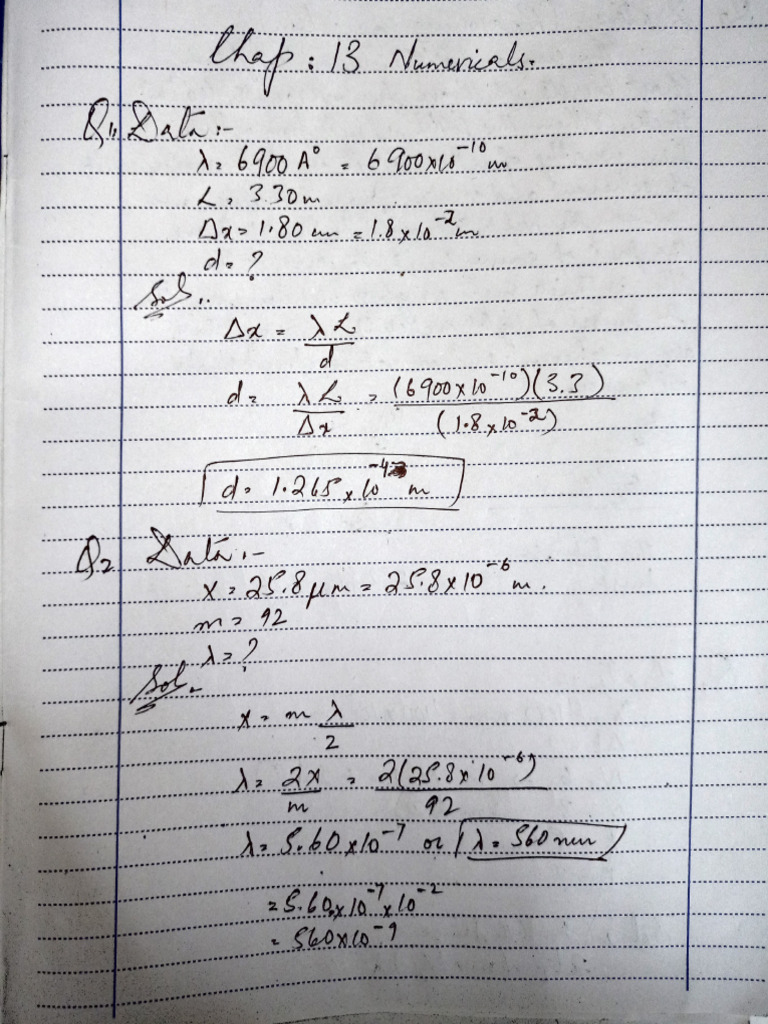 Chap: 13 Numericals.
Q1, Data :-
λ = 6900 A° = 6900x10⁻¹⁰ m
L = 3.30 m
Δx = 1.80 cm = 1.8 x 10⁻² m
d = ?
Sol..
Δx = λL/d
d = λL/Δx = (6900 x 10⁻¹⁰)(3.3)/(1.8 x 10⁻²)
d = 1.265 x 10⁻⁴ m
Q2 Data :-
x = 25.8 μm = 25.8 x 10⁻⁶ m.
m = 92
λ = ?
Sol.
x = m λ/2
λ = 2x/m = 2(25.8 x 10⁻⁶)/92
λ = 5.60 x 10⁻⁷ or λ = 560 nm
= 5.60 x 10⁻⁷ x 10⁻²
= 560 x 10⁻⁹